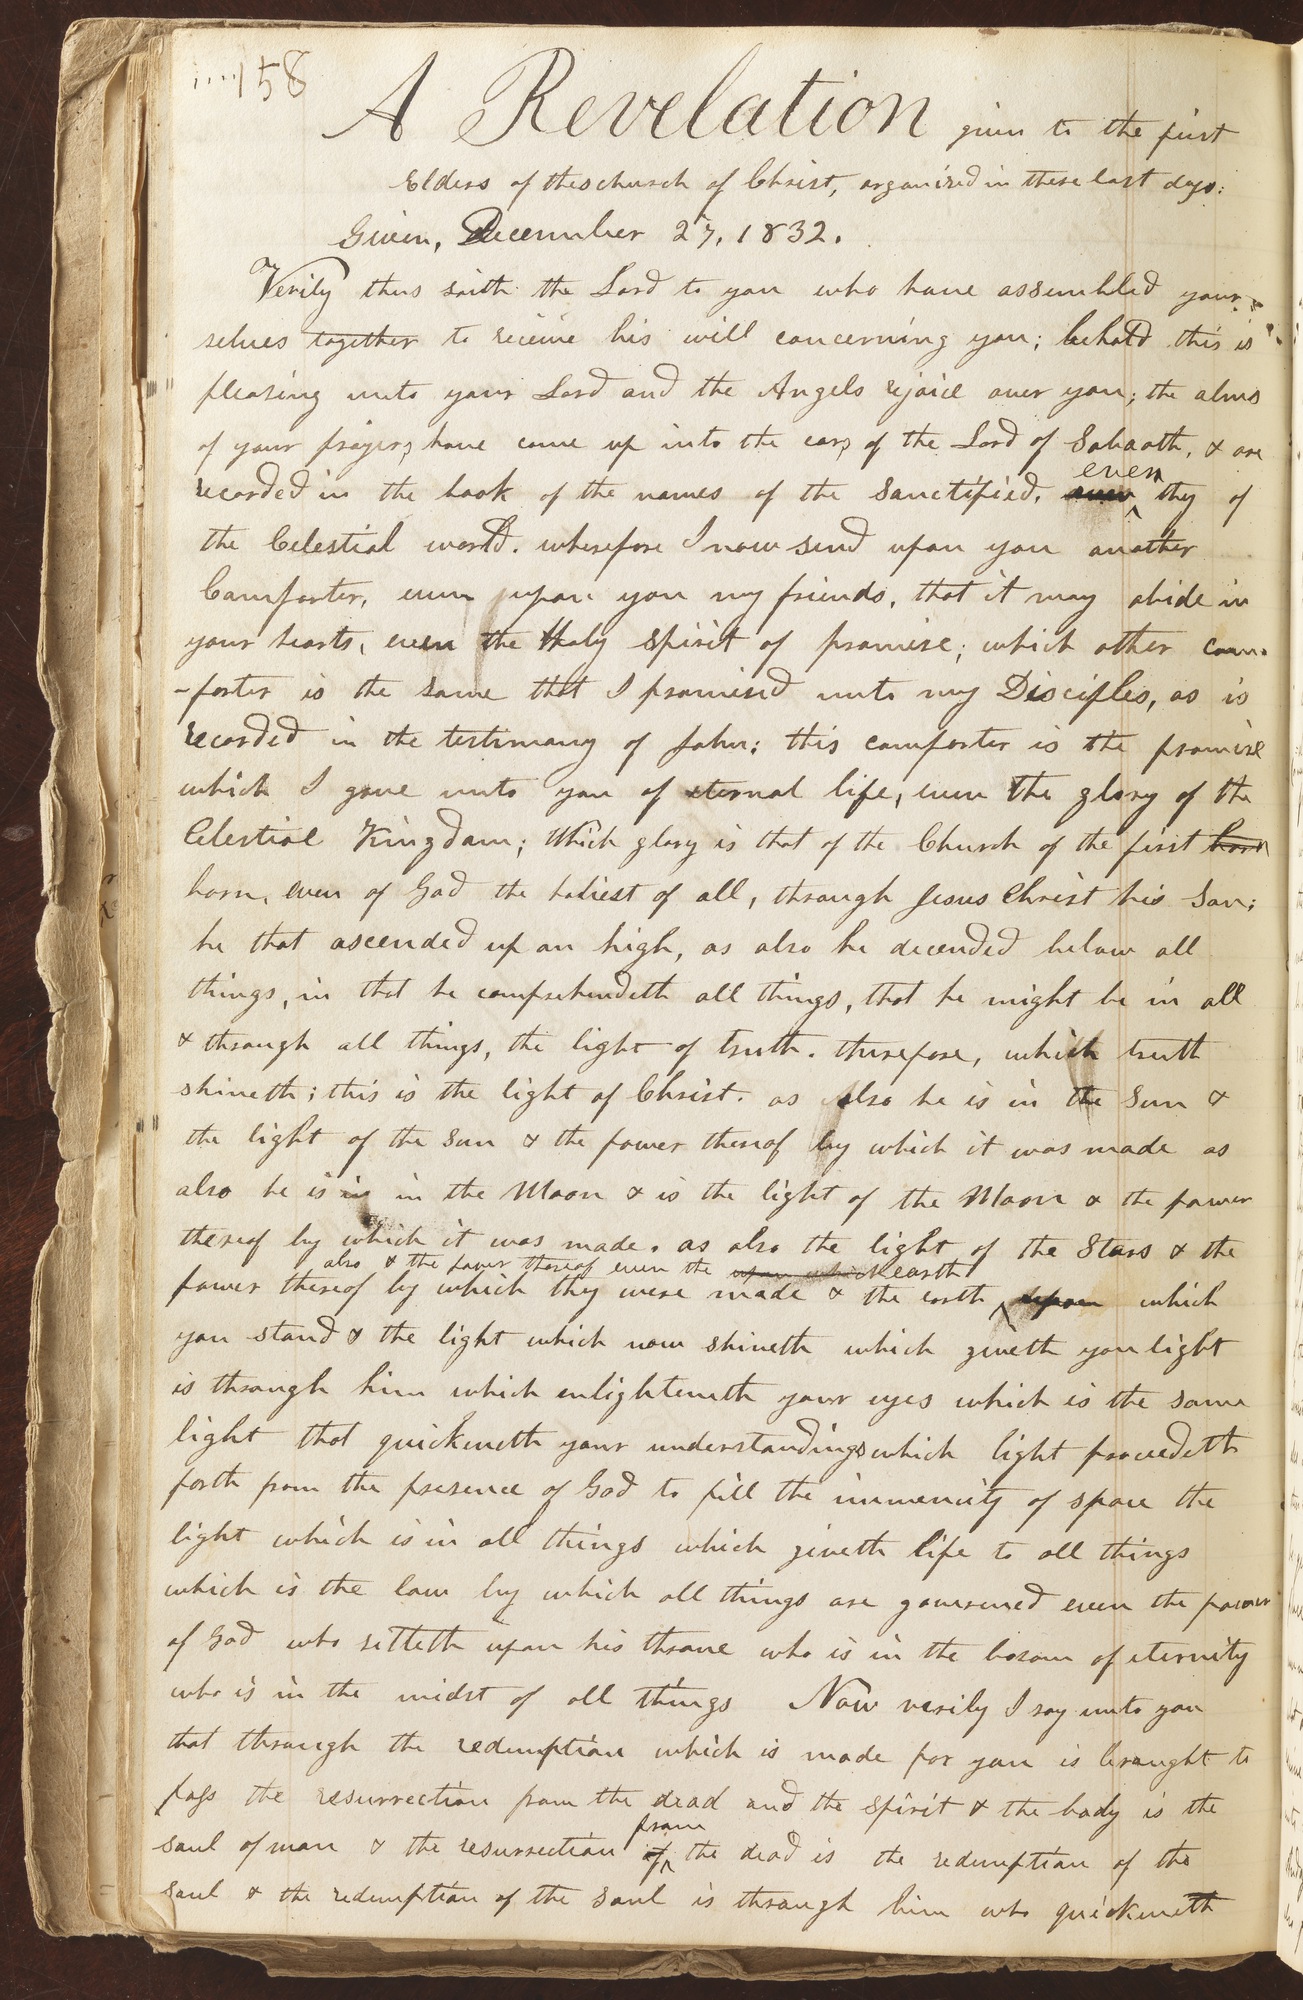 158
A Revelation given to the first
Elders of this church of Christ, organized in these last days:
Given, December 27, 1832.
Verily thus saith the Lord to you who have assembled your-
selves together to receive his will concerning you; behold this is
pleasing unto your Lord and the Angels rejoice over you; the alms
of your prayers have come up into the ears of the Lord of Sabaoth, & are
recorded in the book of the names of the Sanctified, even they of
the Celestial world. wherefore I now send upon you another
Comforter, even upon you my friends, that it may abide in
your hearts, even the Holy spirit of promise; which other com-
-forter is the same that I promised unto my Disciples, as is
recorded in the testimony of John; this comforter is the promise
which I give unto you of eternal life, even the glory of the
Celestial Kingdom; Which glory is that of the Church of the first born
born, even of God the holiest of all, through Jesus Christ his Son;
he that ascended up on high, as also he decended below all
things, in that he comprehendeth all things, that he might be in all
& through all things, the light of truth. therefore, which truth
shineth; this is the light of Christ. as also he is in the Sun &
the light of the Sun & the power thereof by which it was made as
also he is in in the Moon & is the light of the Moon & the power
thereof by which it was made. as also the light of the Stars & the
also & the power thereof even the upon which earth
power thereof by which they were made & the earth upon which
you stand & the light which now shineth which giveth you light
is through him which enlighteneth your eyes which is the same
light that quickeneth your understandings which light proceedeth
forth from the presence of God to fill the immencity of space the
light which is in all things which giveth life to all things
which is the law by which all things are governed even the power
of God who sitteth upon his throne who is in the bosom of eternity
who is in the midst of all things Now verily I say unto you
that through the redemption which is made for you is brought to
pass the resurrection from the dead and the spirit & the body is the
soul of man & the resurrection of from the dead is the redemption of the
soul & the redemption of the soul is through him who quickeneth